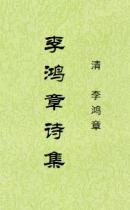 李鸿章诗集
清 李鸿章